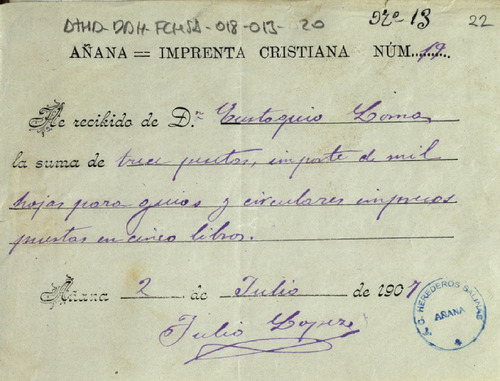 DTHD-DDH-FCHSA-018-013-20
Nº 13
22
AÑANA = IMPRENTA CRISTIANA NÚM. 13
He recibido de D.n Eustaquio Loma
la suma de trece pesetas, importe de mil
hojas para guias y circulares impresas
puestas en cinco libros.
Añana 2 de Julio de 1907
Julio Lopez
HEREDEROS SALINAS
AÑANA